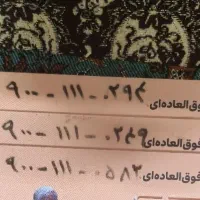 وق‌العاده‌ای ۹۰۰-۱۱۱-۰۲۹۴
فوق‌العاده‌ای ۹۰۰-۱۱۱-۰۲۴۹
فوق‌العاده‌ای ۹۰۰-۱۱۱-۰۵۸۲